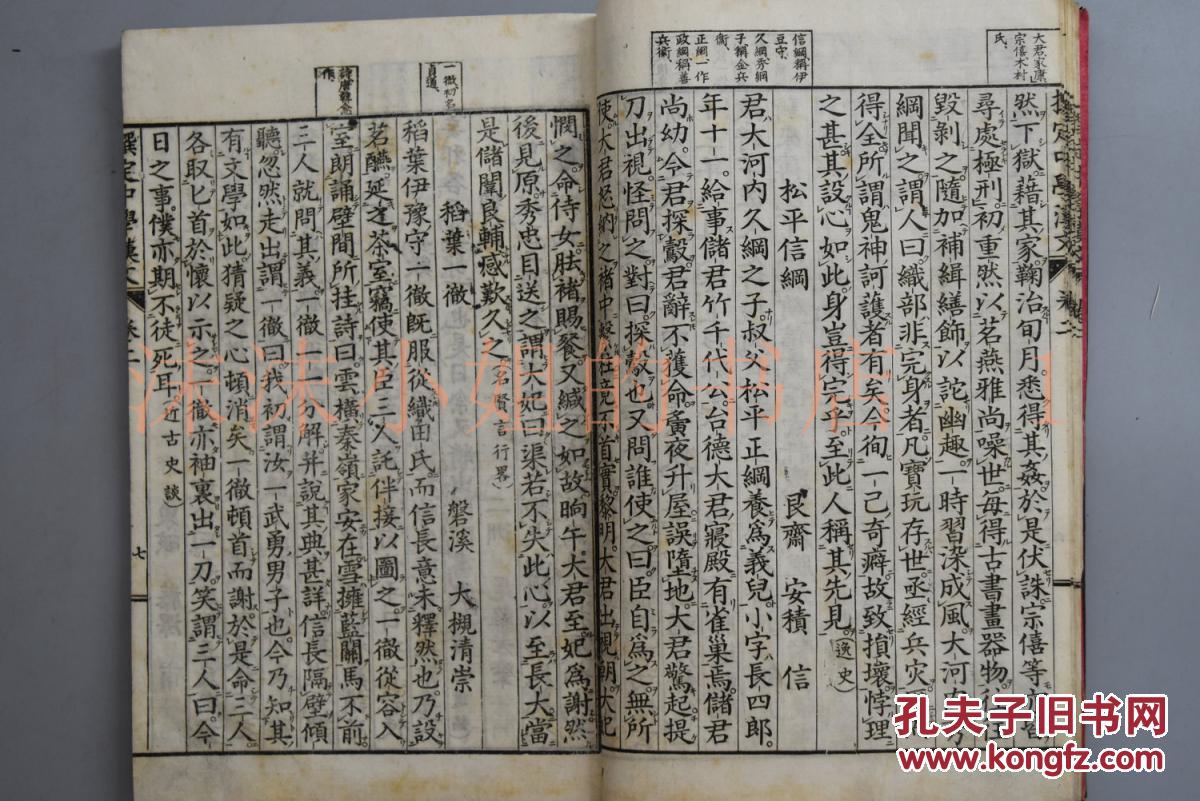 大君家康
宗僖木村
氏、
然下獄藉其家鞠治旬月悉得其姦於是伏誅宗僖等
尋處極刑初重然以茗燕雅尚噪世每得古書畫器物
毀剝之隨加補緝繕飾以詫幽趣一時習染成風大河
綱聞之謂人曰織部非完身者凡寶玩存世丞經兵灾
得全所謂鬼神訶護者有矣今徇一己奇癖故致損壞悖理
之甚其設心如此身豈得完乎至此人稱其先見(逸史)
信綱稱伊
豆守、
久綱秀綱
子稱金兵
衞、
正綱一作
政綱稱善
兵衞、
松平信綱 艮齋 安積 信
君大河内久綱之子叔父松平正綱養爲義兒小字長四郎
年十一給事儲君竹千代公台德大君寢殿有雀巢焉儲君
尚幼令君探鷇君辭不獲命寅夜升屋誤墮地大君驚起提
刀出視怪問之對曰探鷇也又問誰使之曰臣自爲之無所
使大君
首實黎明大君出視朝
憫之命侍女胠褚賜餐又緘之如故晌午大君至妃爲謝然
後見原秀忠目送之謂大妃曰渠若不失此心以至長大當
是儲闈良輔感歎久之(名賢言行畧)
一徹初名
貞通、
稻葉一徹 磐溪 大槻清崇
稻葉伊豫守一徹既服從織田氏而信長意未釋然也乃設
茗醼延之茶室竊使其臣三人託伴接以圖之一徹從容入
室朗誦壁間所挂詩曰雲橫秦嶺家安在雪擁藍關馬不前
三人就問其義一徹一一分解并說其典甚詳信長隔壁傾
聽忽然走出謂一徹曰我初謂汝一武勇男子也今乃知其
有文學如此猜疑之心頓消矣一徹頓首而謝於是命三人
各取匕首於懷以示之一徹亦袖裏出一刀笑謂三人曰今
日之事僕亦期不徒死耳(近古史談)
撰定中學漢文 卷二 七
沫沫小姐的书店
孔夫子旧书网
www.kongfz.com